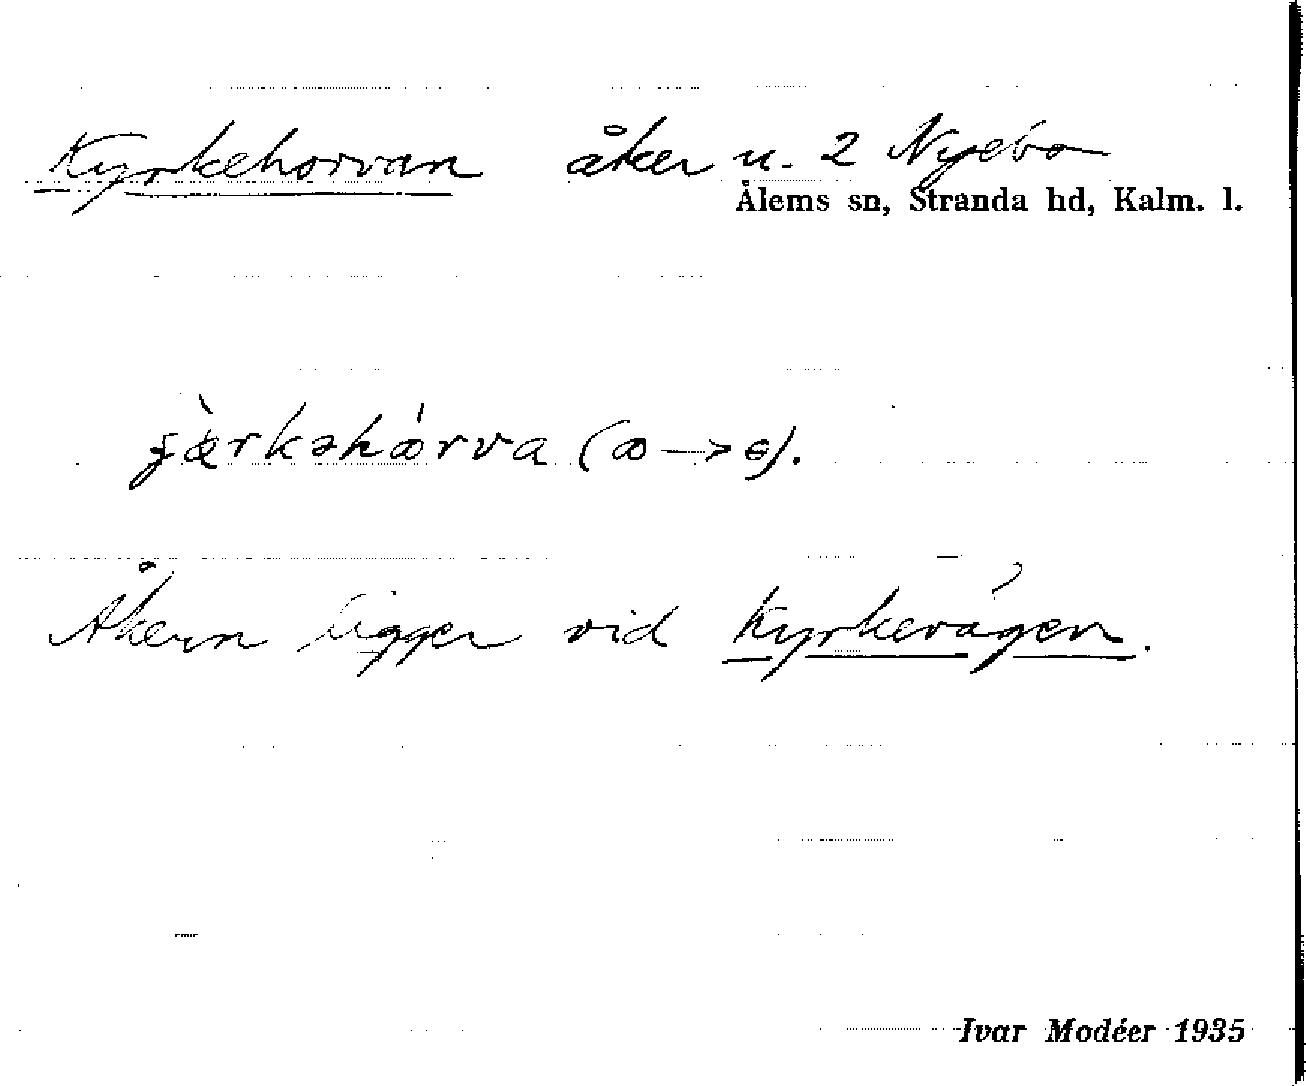 Kyrkehorvan åker u. 2 Nyebo
Ålems sn, Stranda hd, Kalm. l.
Åkern ligger vid Kyrkevägen.
Ivar Modéer 1935